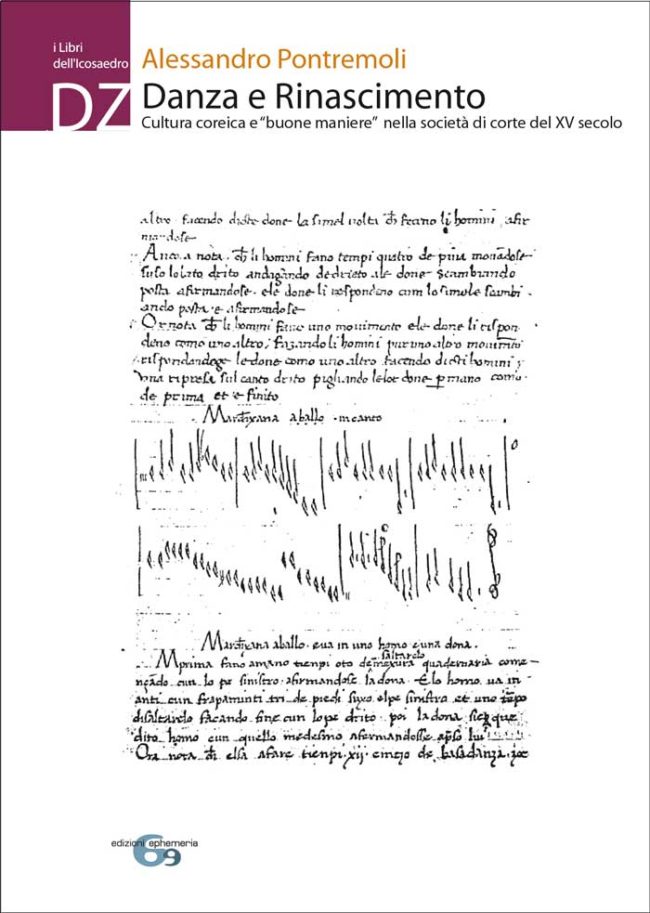 i Libri
dell'Icosaedro
DZ
Alessandro Pontremoli
Danza e Rinascimento
Cultura coreica e “buone maniere” nella società di corte del XV secolo
altro facendo diste done la simel volta ch feceno li homini afir
mandose
Ancora nota ch li homini fano tempi quatro de piva
suso lo lato drito andagando dedrieto ale done scambiando
posta afirmandose ele done li respondeno cum lo simele scambi
ando posta e afirmandose
Or nota ch li homini fano uno movimento ele done li rispon
deno como uno altro, fazando li homini pur uno altro movimto
rispondandoge le done como uno altro facendo disti homini
una ripresa sul canto drito pigliando le lor done p mano como
de prima et e finito
a ballo in canto
a ballo eva in uno homo e una dona.
saltarelo
Mprima fano amano tienpi oto de mexura quadernaria come-
nçado cun lo pe sinistro afirmandose la dona. Elo homo va in
anti cun frapamenti tri de piedi suxo el pe sinistro et uno tenpo
di saltarelo facando fine cun lo pe drito poi la dona sieque
dito homo cun quello medesmo afermandosse apso lui
Ora nota ch ella afare tienpi xii cinqo de basadanza
edizioni ephemeria
69